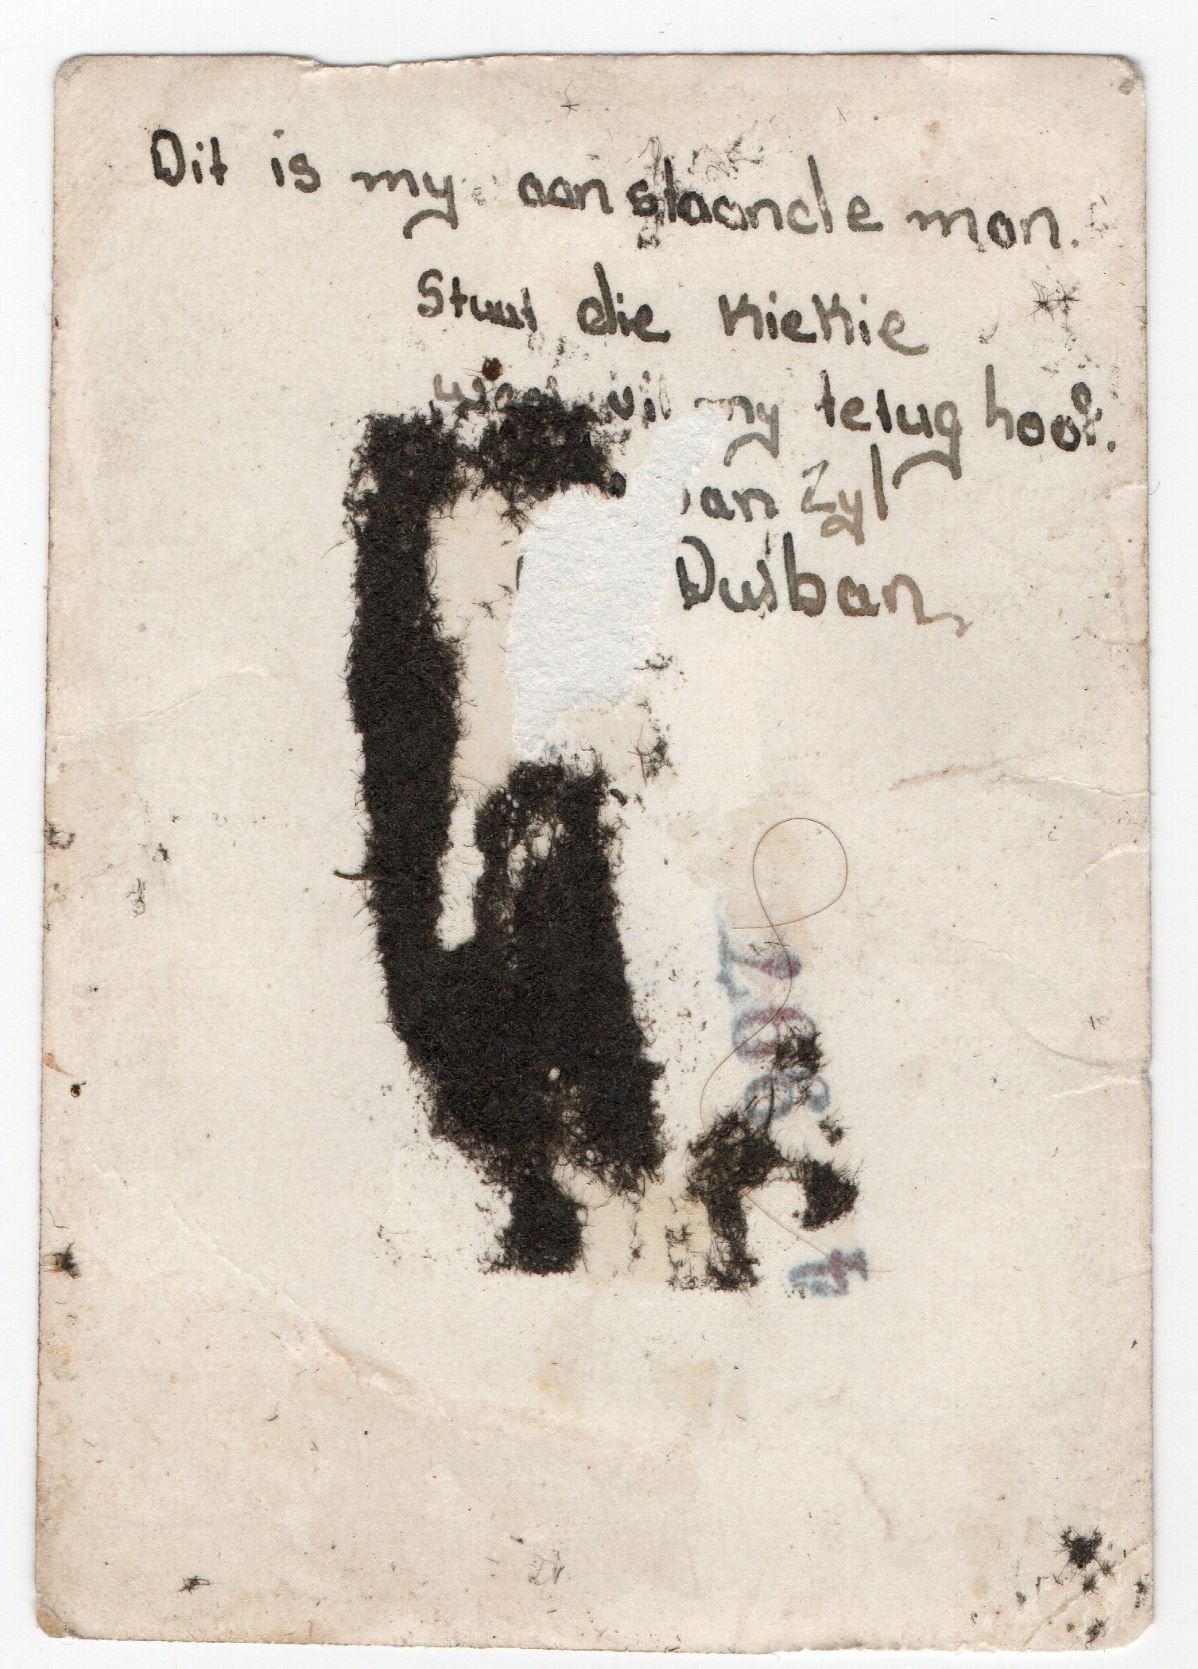 Dit is my aanstaande man.
Stuur die KieKie
wil my terug hoor.
van Zyl
Durban